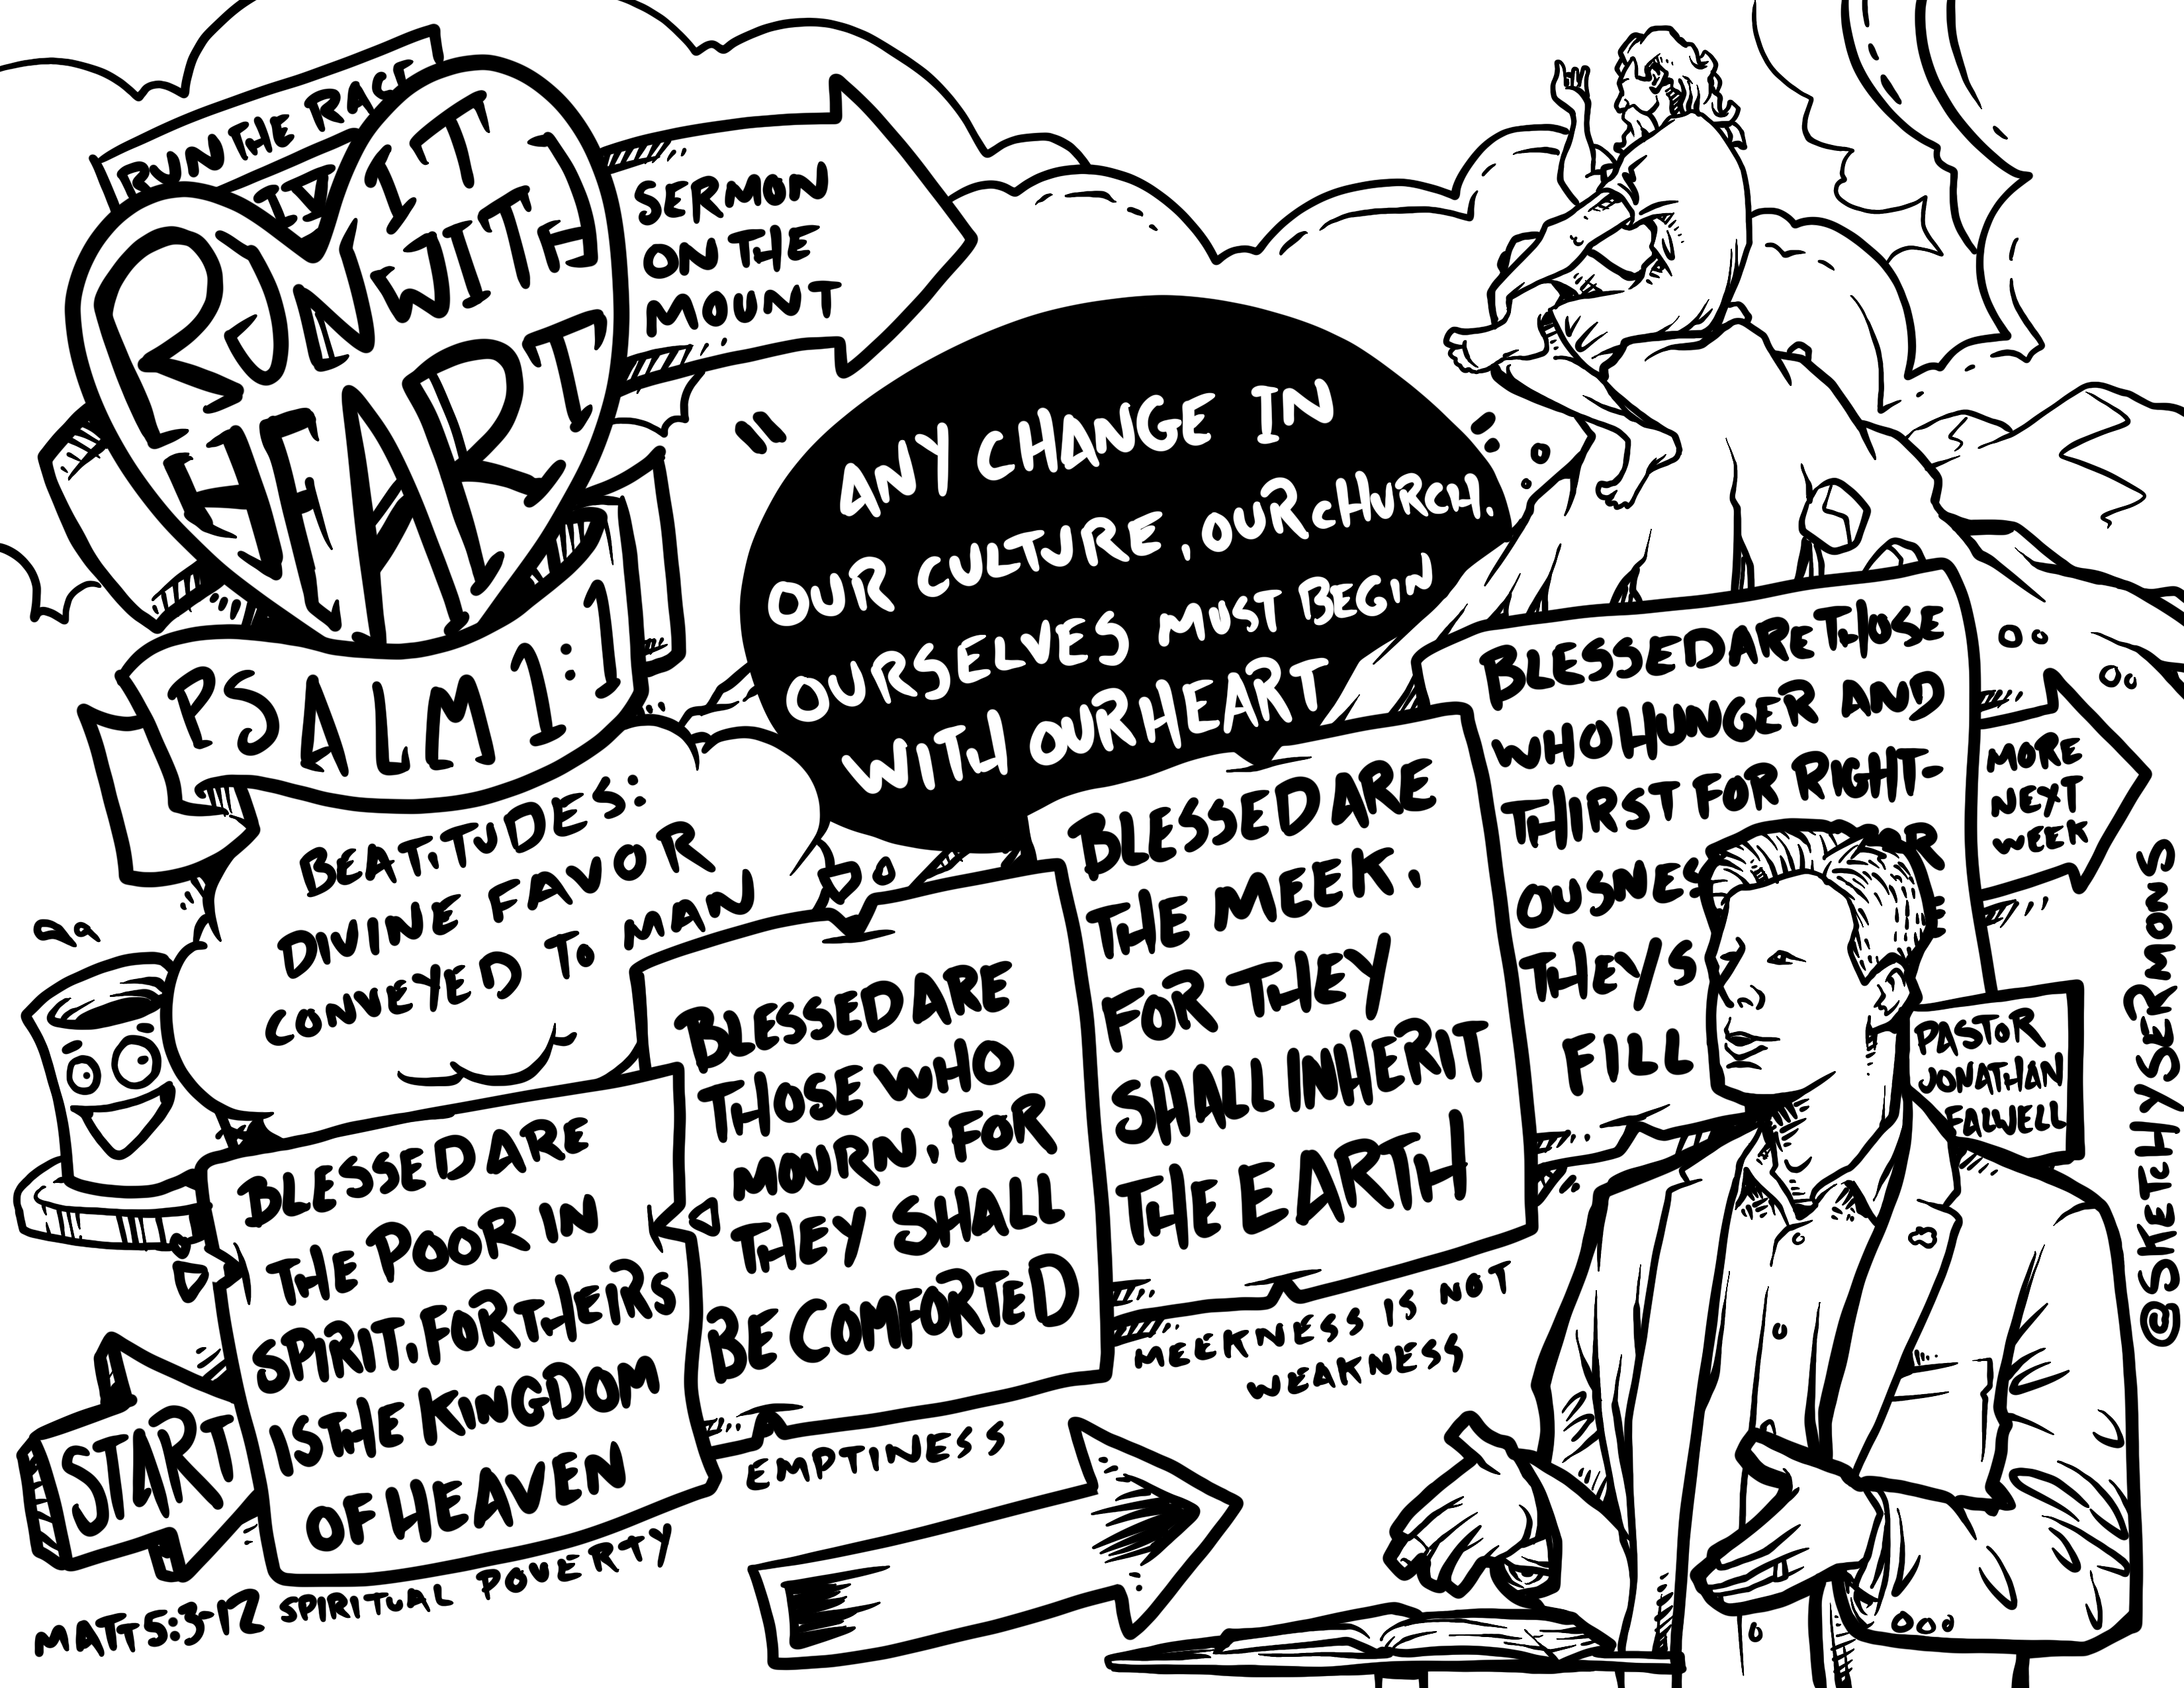 RUN THE RACE
RUN IT
WITH
HEART
PSALM 1:1
SERMON
ON THE
MOUNT
ANY CHANGE IN
OUR CULTURE, OUR CHURCH,
OURSELVES MUST BEGIN
WITH OUR HEART
BEATITUDES:
DIVINE FAVOR
CONVEYED TO MAN
START
BLESSED ARE
THE POOR IN
SPIRIT, FOR THEIRS
IS THE KINGDOM
OF HEAVEN
MATT 5:3-12
SPIRITUAL POVERTY
BLESSED ARE
THOSE WHO
MOURN, FOR
THEY SHALL
BE COMFORTED
EMPTINESS
BLESSED ARE
THE MEEK,
FOR THEY
SHALL INHERIT
THE EARTH
MEEKNESS IS NOT
WEAKNESS
BLESSED ARE THOSE
WHO HUNGER AND
THIRST FOR RIGHT-
OUSNES
THEY S
FILL
MORE
NEXT
WEEK
PASTOR
JONATHAN
FALWELL
@SKETCHYSERMONS